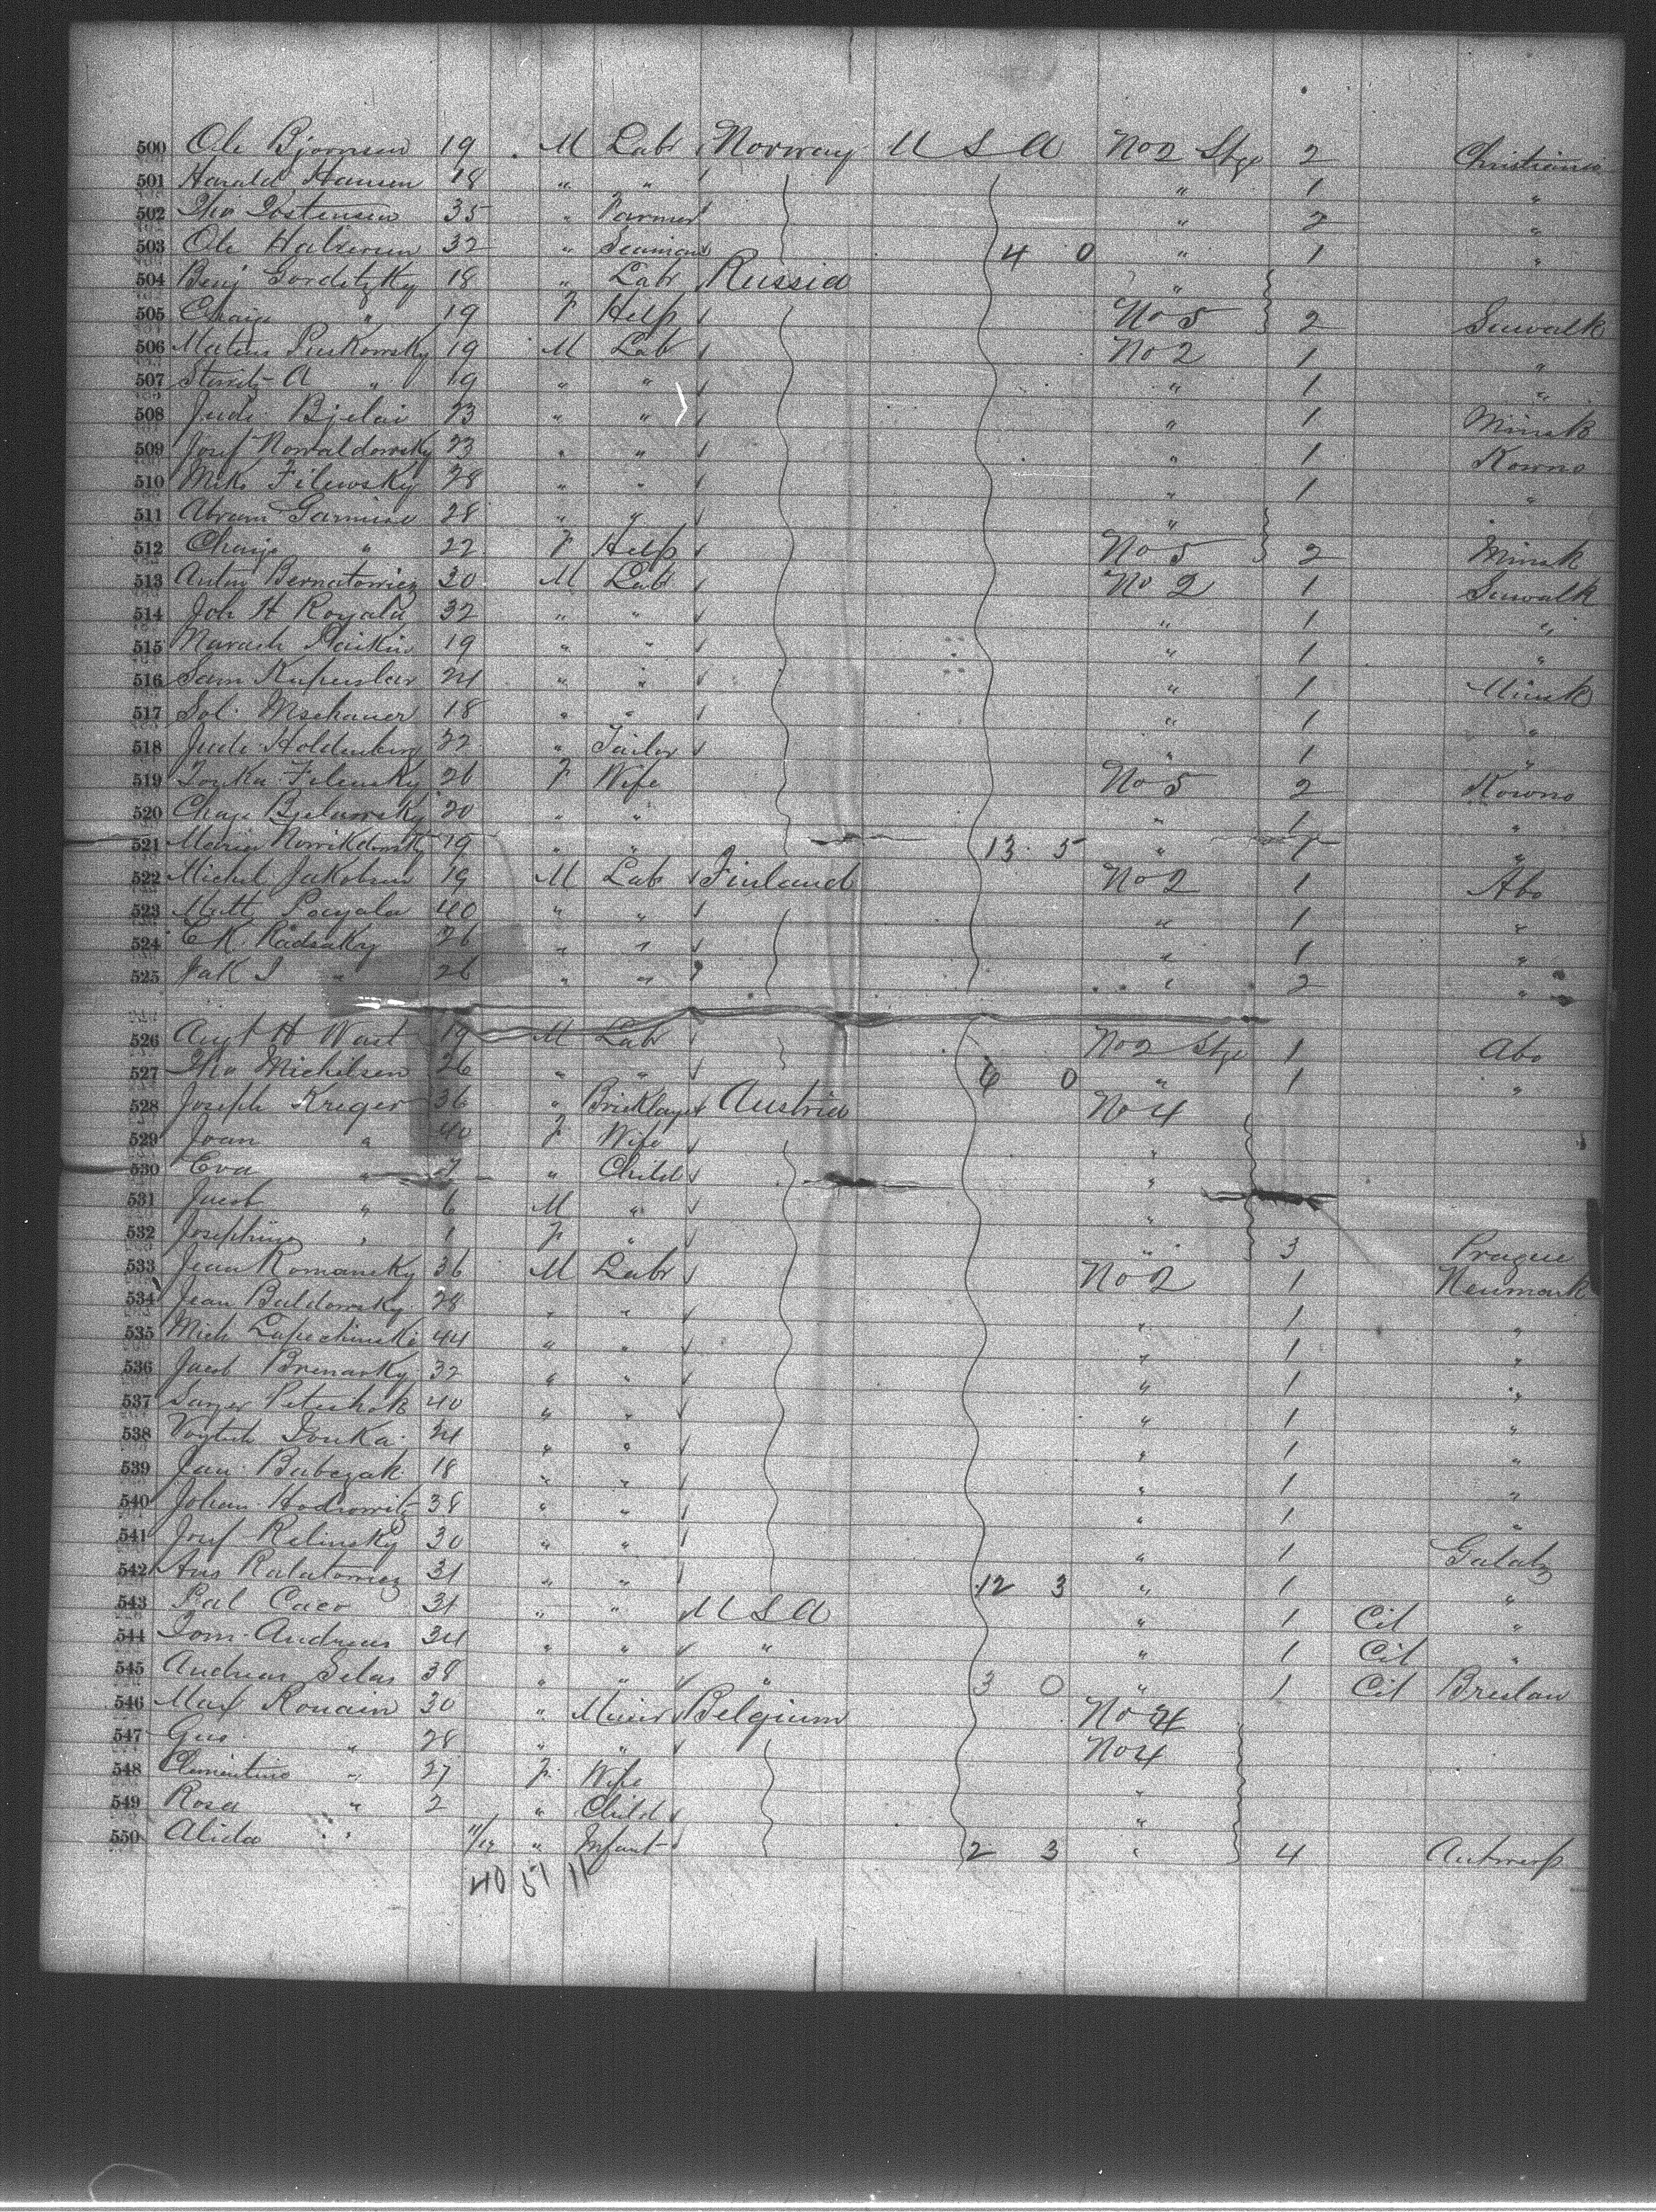 500 Ole Bjornsen 19 M Labr Norway U S A No 2 Stge 2 Christiania
501 Harald Hansen 18 " " 1 "
502 Tho Tostensen 35 " Farmer " 2 "
503 Ole Halversen 32 " Seaman 4 0 " 1 "
504 Benj Gordetzky 18 " Labr Russia "
505 Chaie " 19 F Help No 5 2 Suwalk
506 Matius Puskowsky 19 M Lab No 2 1 "
507 A " 19 " " " 1 "
508 Jude Bjelai 23 " " " 1 Minsk
509 Josef Nowaldowsky 23 " " " 1 Kowno
510 Mike Filewsky 28 " " " 1 "
511 Abram Garmise 28 " " "
512 Chaije " 22 F Help No 5 2 Minsk
513 Antoy Bernatowicz 30 M Labr No 2 1 Suwalk
514 Joh H Royala 32 " " " 1 "
515 Narach Plaikin 19 " " " 1 "
516 Sam Kuperslav 24 " " " 1 Minsk
517 Sol. Mschauer 18 " " " 1 "
518 Jude Holdenberg 22 " Tailor " 1 "
519 Filewsky 26 F Wife No 5 2 Kowno
520 Chaje Bjelawsky 20 " " " 1 "
521 Maria 19 " " 13 5 " 1 "
522 Michel Jakobsen 19 M Lab Finland No 2 1 Abo
523 Matt Pocyala 40 " " " 1 "
524 C K. Radsaky 26 " " " 1 "
525 Jak I " 26 " " " 2 "
526 Augt H Wast 19 M Labr No 2 Stge 1 Abo
527 Tho Michelsen 26 " " 6 0 " 1 "
528 Joseph Kreger 36 " Bricklayer Austria No 4
529 Joan " 40 F Wife "
530 Eva " 7 " Child "
531 Jacob " 6 M " "
532 Josephine " 1 F " " 3 Prague
533 Jean Romansky 36 M Labr No 2 1 Neumark
534 Jean Baldowsky 28 " " " 1 "
535 Mich Lapechinski 44 " " " 1 "
536 Jacob Brenarky 32 " " " 1 "
537 Petershak 40 " " " 1 "
538 Voytech 24 " " " 1 "
539 Jan Babczak 18 " " " 1 "
540 Johan Hodrowitz 38 " " " 1 "
541 Josef Relinsky 30 " " " 1 Galatz
542 Ans Ralatowicz 31 " " 12 3 " 1 "
543 Pal Caco 31 " " U S A " 1 Cit "
544 Tom Andreas 34 " " " " 1 Cit "
545 Andreas Silas 38 " " " 3 0 " 1 Cit Breslau
546 Max Ronain 30 " Miner Belgium No 4
547 Gus " 28 " " No 4
548 Clementine " 27 F Wife "
549 Rosa " 2 " Child "
550 Alida " 11/12 " Infant 2 3 " 4 Antwerp
40 51 11